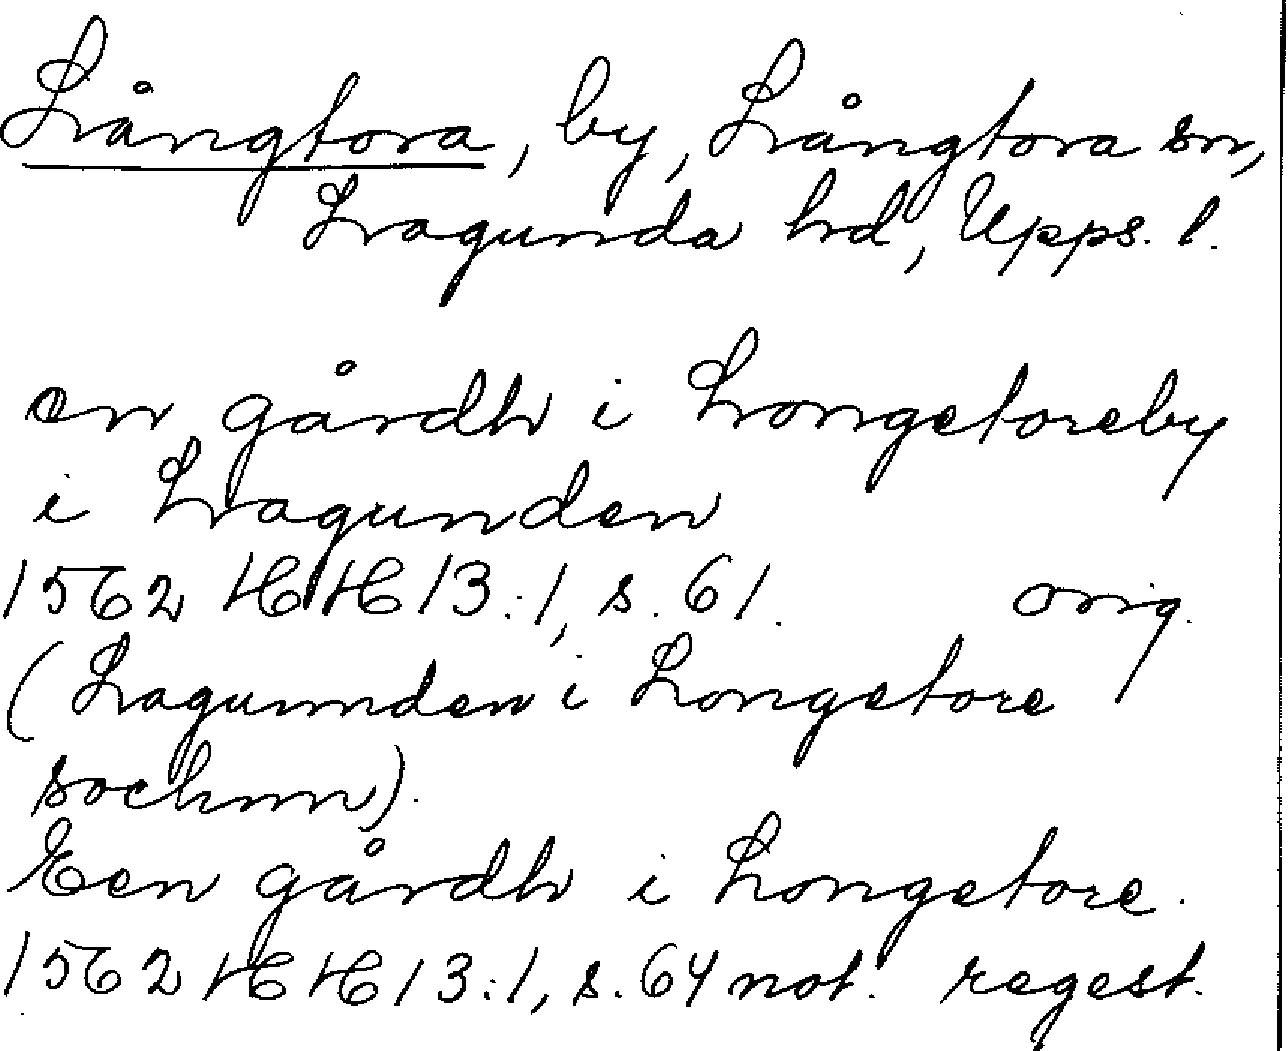 Långtora, by, Långtora sn,
Lagunda hd, Upps. l.
en gårdh i Longetoreby
i Lagunden
1562 HH 13:1, s. 61. orig.
(Lagunnden i Longetore
sochnn).
Een gårdh i Longetore.
1562 HH 13:1, s. 64 not. regest.